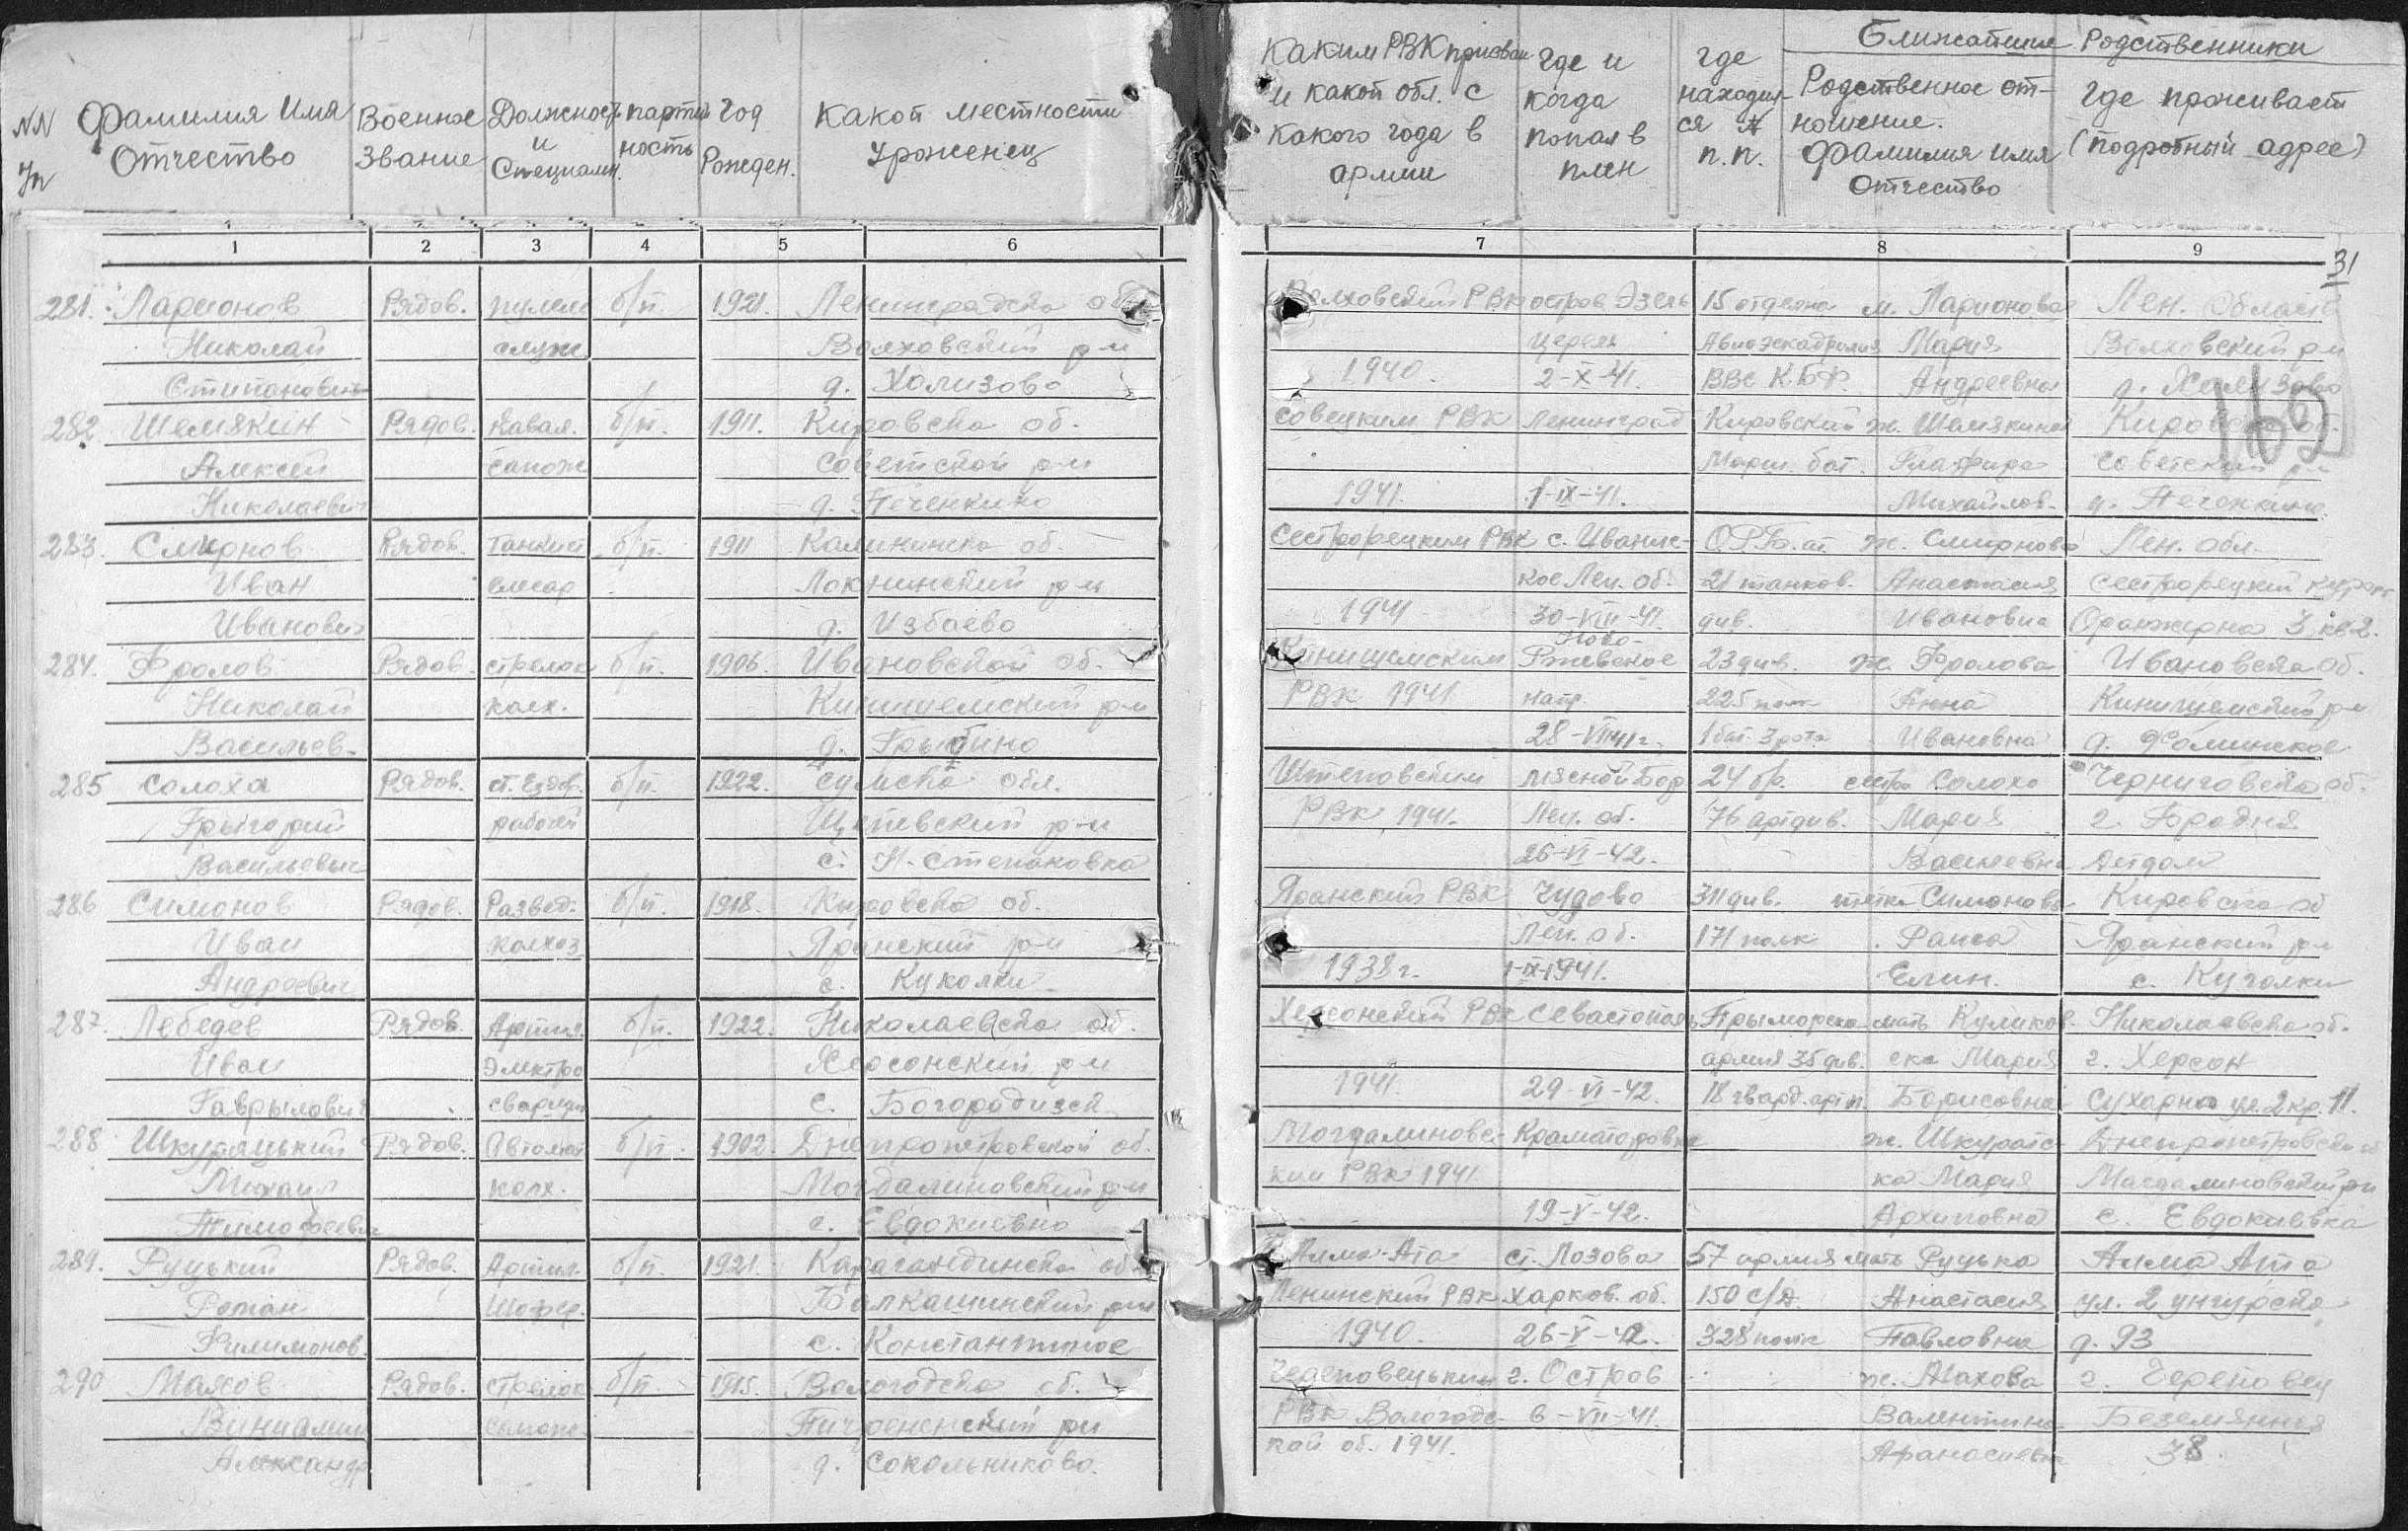 NN п/п
Фамилия Имя Отчество
Военное Звание
Должность и Специальн.
партийность
Год Рожден.
Какой местности уроженец
Каким РВК призван и какой обл. с какого года в армии
Где и когда попал в плен
Где находился п.п.
Ближайшие Родственники
Родственное отношение. Фамилия имя отчество
Где проживает (подробный адрес)
1 2 3 4 5 6 7 8 9
31
162
281. Ларионов Рядов. пулем б/п. 1921. Ленинградска об. Волховский РВК остров Эзель 15 отдельна м. Ларионова Лен. Область
Николай служ. Волховский р-н Церель Авиоэскадрилия Мария Волховский р-н
Степанович д. Хализово 1940. 2-X-41. ВВС К.Б.Ф. Андреевна д. Хализово
282. Шемякин Рядов. Кавал. б/п. 1911. Кировска об. Совецким РВК Ленинград Кировский ж. Шемякина Кировска об.
Алексей сапож Советской р-н Морш. бат. Глафира Советский р-н
Николаевич д. Печенкино 1941. 1-IX-41. Михайлов. д. Печенкино
283. Смирнов Рядов. Танкист б/п. 1911 Калининска об. Сестрорецким РВК с. Иванис- О.Р.Б. ат. ж. Смирнова Лен. обл.
Иван слесар Локнинский р-н кое Лен. об. 21 танков. Анастасия Сестрорецкий Курорт
Иванович д. Избаево 1941 30-VIII-41. див. Ивановна Оранжерна 3 кв 2.
284. Фролов Рядов. стрелок б/п. 1906. Ивановской об. Кинишемским Ново-Ржевское 23 див. ж. Фролова Ивановска об.
Николай колх. Кинишемский р-н РВК 1941 нап. 225 полк Анна Кинишемский р-н
Васильев. д. Грыбино 28-VII-41г. 1 бат. 3 рота Ивановна д. Фоминское
285 Солоха Рядов. ст. Ездов. б/п. 1922. Сумска обл. Штеповским мясной Бор 24 бр. сестра Солоха Черниговска об.
Грыгорий рабочий Штепевский р-н РВК 1941. Лен. об. 76 артдив. Мария г. Бродня
Васильевич с. Н. Степановка 26-VI-42. Васильевна Детдом
286 Симонов Рядов. Развед. б/п. 1918. Кировска об. Яранский РВК Чудово 311 див. тетка Симонова Кировска об
Иван колхоз Яранский р-н Лен. об. 171 полк Раиса Яранский р-н
Андреевич с. Куколки 1938 г. 1-IX-1941. Елин. с. Куголки
287. Лебедев Рядов. Артил. б/п. 1922. Николаевска об. Херсонский РВК Севастополь Прыморска мать Куликов- Николаевска об.
Иван электро Херсонский р-н армия 35 див. ска Мария г. Херсон
Гаврылович сварщик с. Богородизск 1941. 29-VI-42. 18 гвард. арт п. Борисовна Сухарна ул. 2 кр. 11.
288 Шкурацький Рядов. Автомат б/п. 1902. Днепропетровской об. Могдалиновс- Краматоровка ж. Шкуратс- Днепропетровска об
Михаил колх. Могдалиновский р-н кий РВК 1941 ка Мария Магдалиновский р-н
Тимофеевич с. Евдокиевка 19-V-42. Архиповна с. Евдокиевка
289. Руцький Рядов. Артил. б/п. 1921. Карагандинска об. Алма-Ата ст. Лозова 57 армия мать Руцька Алма Ата
Роман Шофер. Балкашинский р-н Ленинский РВК Харков. об. 150 с/д. Анастасия ул. 2 унгурска
Филимонов. с. Константиное 1940. 26-V-42. 328 полк Павловна д. 93
290 Махов Рядов. стрелок б/п. 1915. Вологодска об. Череповецьким г. Остров ж. Махова г. Череповец
Виниамин сапож. р-н РВК Вологодс- 6-VII-41. Валентина Беземянная
Александр д. Сокольниково. кой об. 1941. Афанасиевна 38.